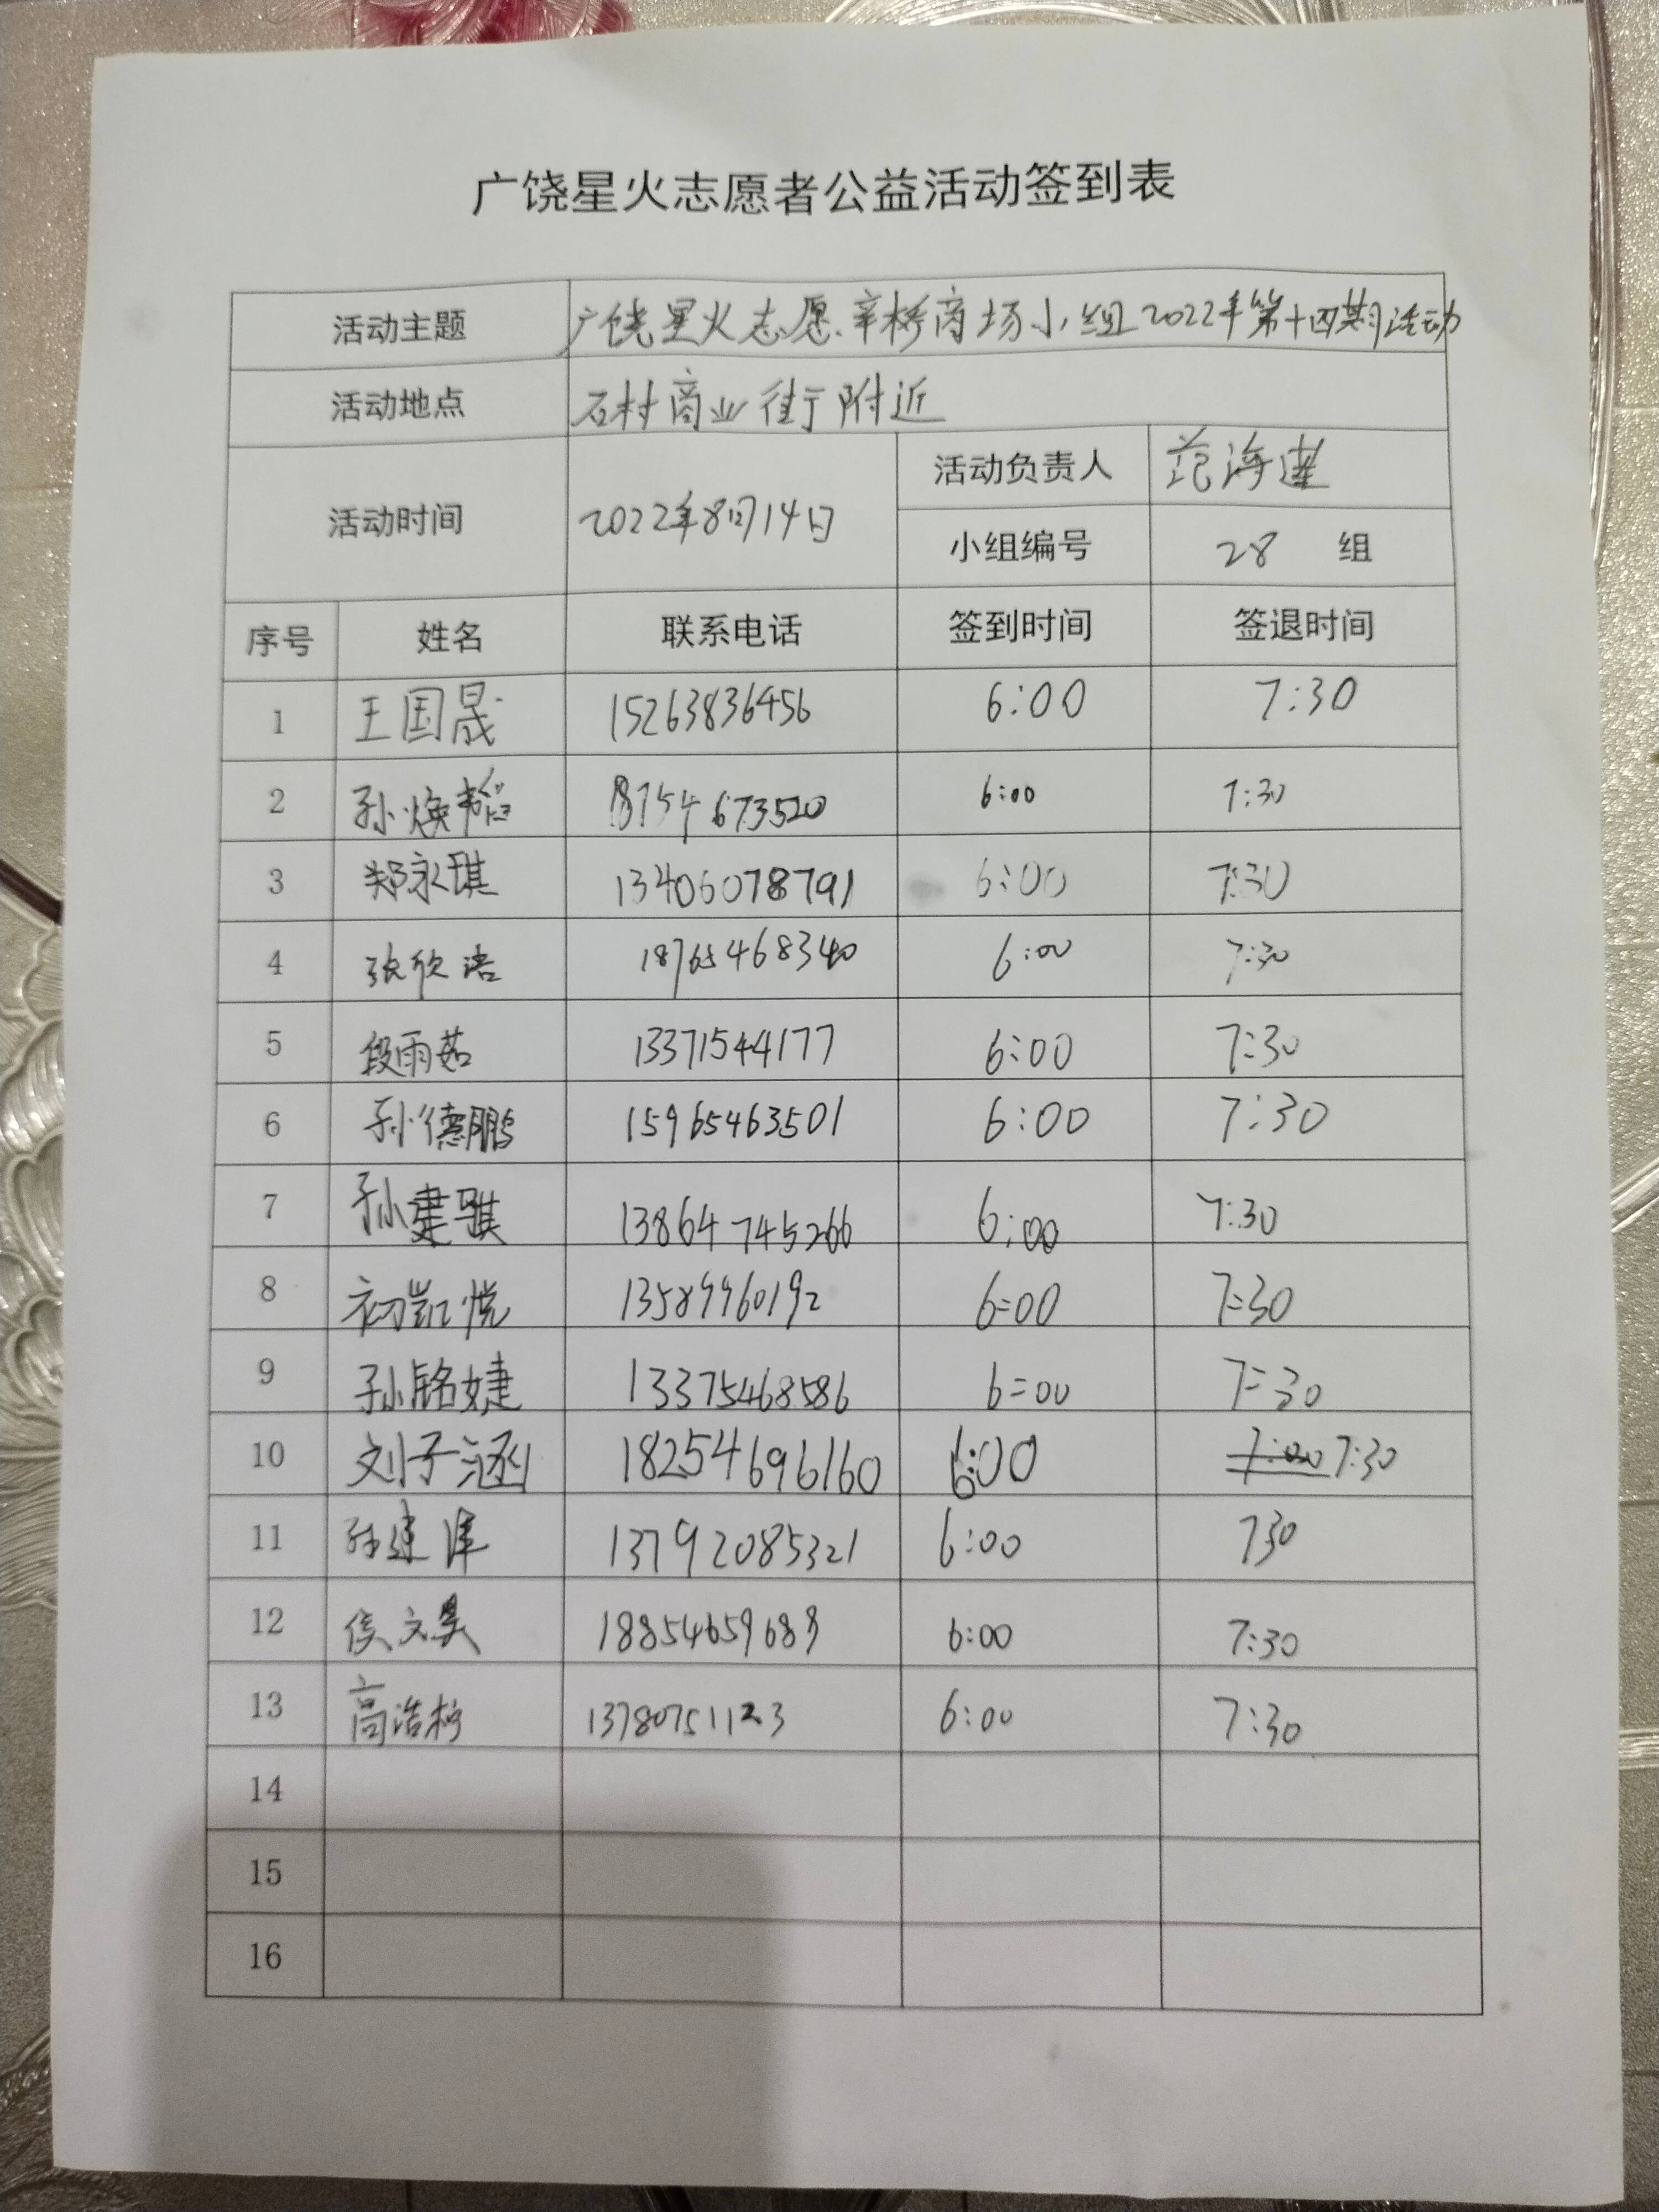 广饶星火志愿者公益活动签到表
活动主题 广饶星火志愿辛桥商场小组2022年第十四期活动
活动地点 石村商业街附近
活动时间 2022年8月14日 活动负责人 范海建
小组编号 28 组
序号 姓名 联系电话 签到时间 签退时间
1 王国晟 15263836456 6:00 7:30
2 孙焕韬 18754673520 6:00 7:30
3 郑永琪 13406078791 6:00 7:30
4 张欣洁 18765468340 6:00 7:30
5 段雨茹 13371544177 6:00 7:30
6 孙德鹏 15965463501 6:00 7:30
7 孙建骐 13864745266 6:00 7:30
8 初凯悦 13589960192 6:00 7:30
9 孙铭婕 13375468586 6:00 7:30
10 刘子涵 18254696160 6:00 7:30
11 孙建 13792085321 6:00 730
12 侯文昊 6:00 7:30
13 高浩 13780751123 6:00 7:30
14
15
16